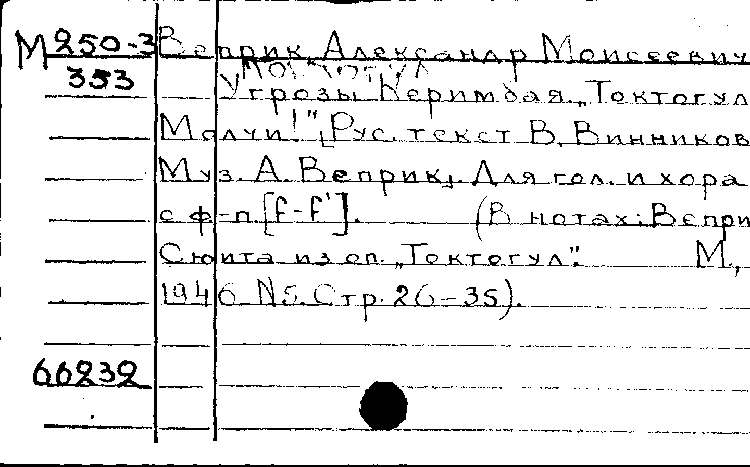 М 250-3 Веприк, Александр Моисеевич
353
Угрозы Керимбая. „Токтогул
Молчи!" [Рус. текст В. Винников
Муз. А. Веприк, Для гол. и хора
с ф-п. [f-f'].	(В нотах: Вепри
Сюита из оп. „Токтогул".	М.,
1946. N5. Стр. 26-35).
66232